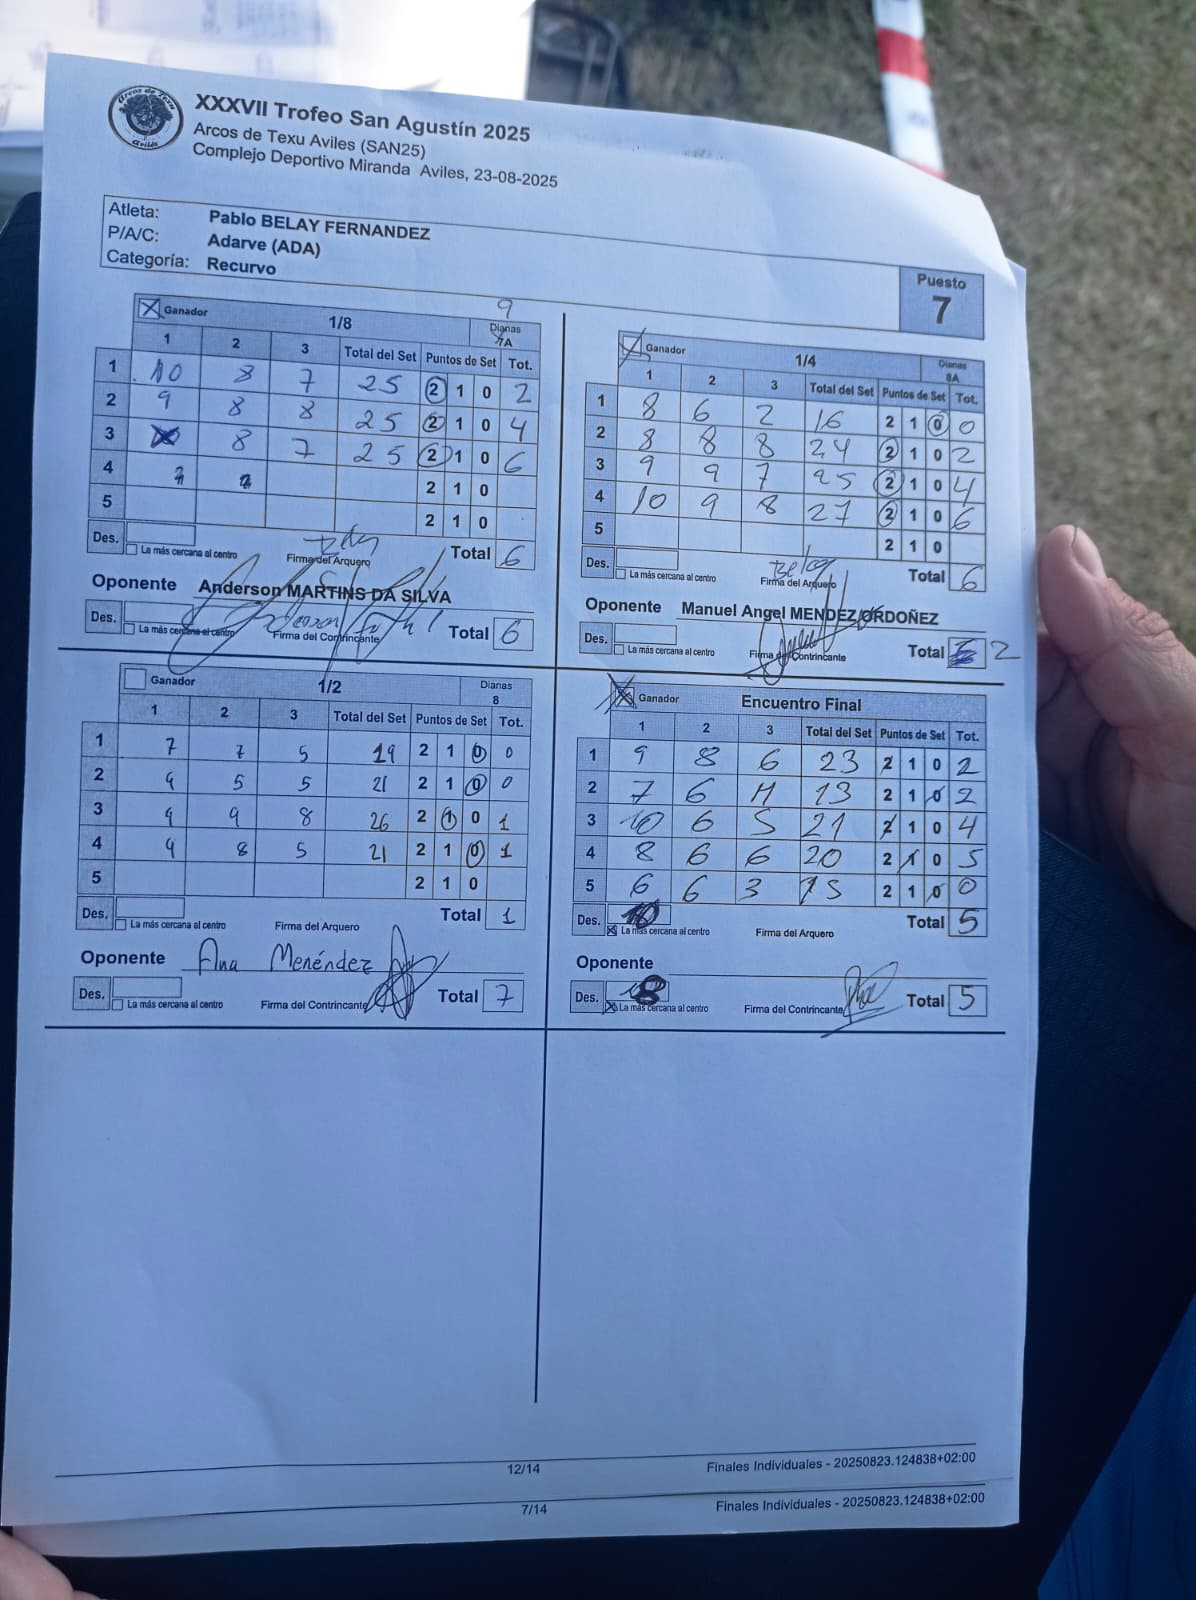 Arcos de Texu
Avilés
XXXVII Trofeo San Agustín 2025
Arcos de Texu Aviles (SAN25)
Complejo Deportivo Miranda Aviles, 23-08-2025
Atleta: Pablo BELAY FERNANDEZ
P/A/C: Adarve (ADA)
Categoría: Recurvo
Puesto
7
9
Ganador 1/8 Dianas
1 2 3 Total del Set Puntos de Set Tot.
1 10 8 7 25 2 1 0 2
2 9 8 8 25 2 1 0 4
3 8 7 25 2 1 0 6
4 2 1 0
5 2 1 0
Des. La más cercana al centro Firma del Arquero Total 6
Oponente Anderson MARTINS DA SILVA
Des. La más cercana al centro Firma del Contrincante Total 6
Ganador 1/4 Dianas
8A
1 2 3 Total del Set Puntos de Set Tot.
1 8 6 2 16 2 1 0 0
2 8 8 8 24 2 1 0 2
3 9 9 7 25 2 1 0 4
4 10 9 8 27 2 1 0 6
5 2 1 0
Belay
Des. La más cercana al centro Firma del Arquero Total 6
Oponente Manuel Angel MENDEZ ORDOÑEZ
Des. La más cercana al centro Firma del Contrincante Total 2
Ganador 1/2 Dianas
8
1 2 3 Total del Set Puntos de Set Tot.
1 7 7 5 19 2 1 0 0
2 9 5 5 21 2 1 0 0
3 9 9 8 26 2 1 0 1
4 9 8 5 21 2 1 0 1
5 2 1 0
Des. La más cercana al centro Firma del Arquero Total 1
Oponente Ana Menéndez
Des. La más cercana al centro Firma del Contrincante Total 7
Ganador Encuentro Final
1 2 3 Total del Set Puntos de Set Tot.
1 9 8 6 23 2 1 0 2
2 7 6 M 13 2 1 0 2
3 10 6 5 21 2 1 0 4
4 8 6 6 20 2 1 0 5
5 6 6 3 15 2 1 0 0
Des. 10 La más cercana al centro Firma del Arquero Total 5
Oponente
Des. 8 La más cercana al centro Firma del Contrincante Total 5
12/14 Finales Individuales - 20250823.124838+02:00
7/14 Finales Individuales - 20250823.124838+02:00